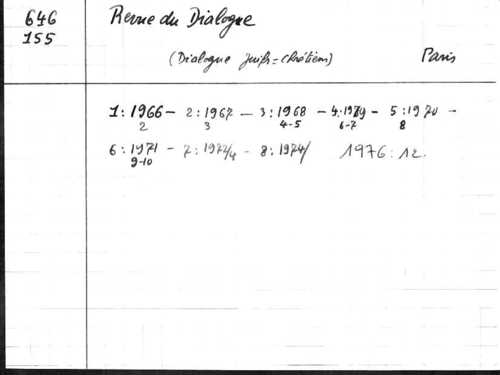 646
155
Revue du Dialogue
(Dialogue juifs=chrétiens)
Paris
1:1966 - 2:1967 - 3:1968 - 4:1969 - 5:1970 -
2 3 4-5 6-7 8
6:1971 - 7:1972/4 - 8:1974/ 1976:12.
9-10